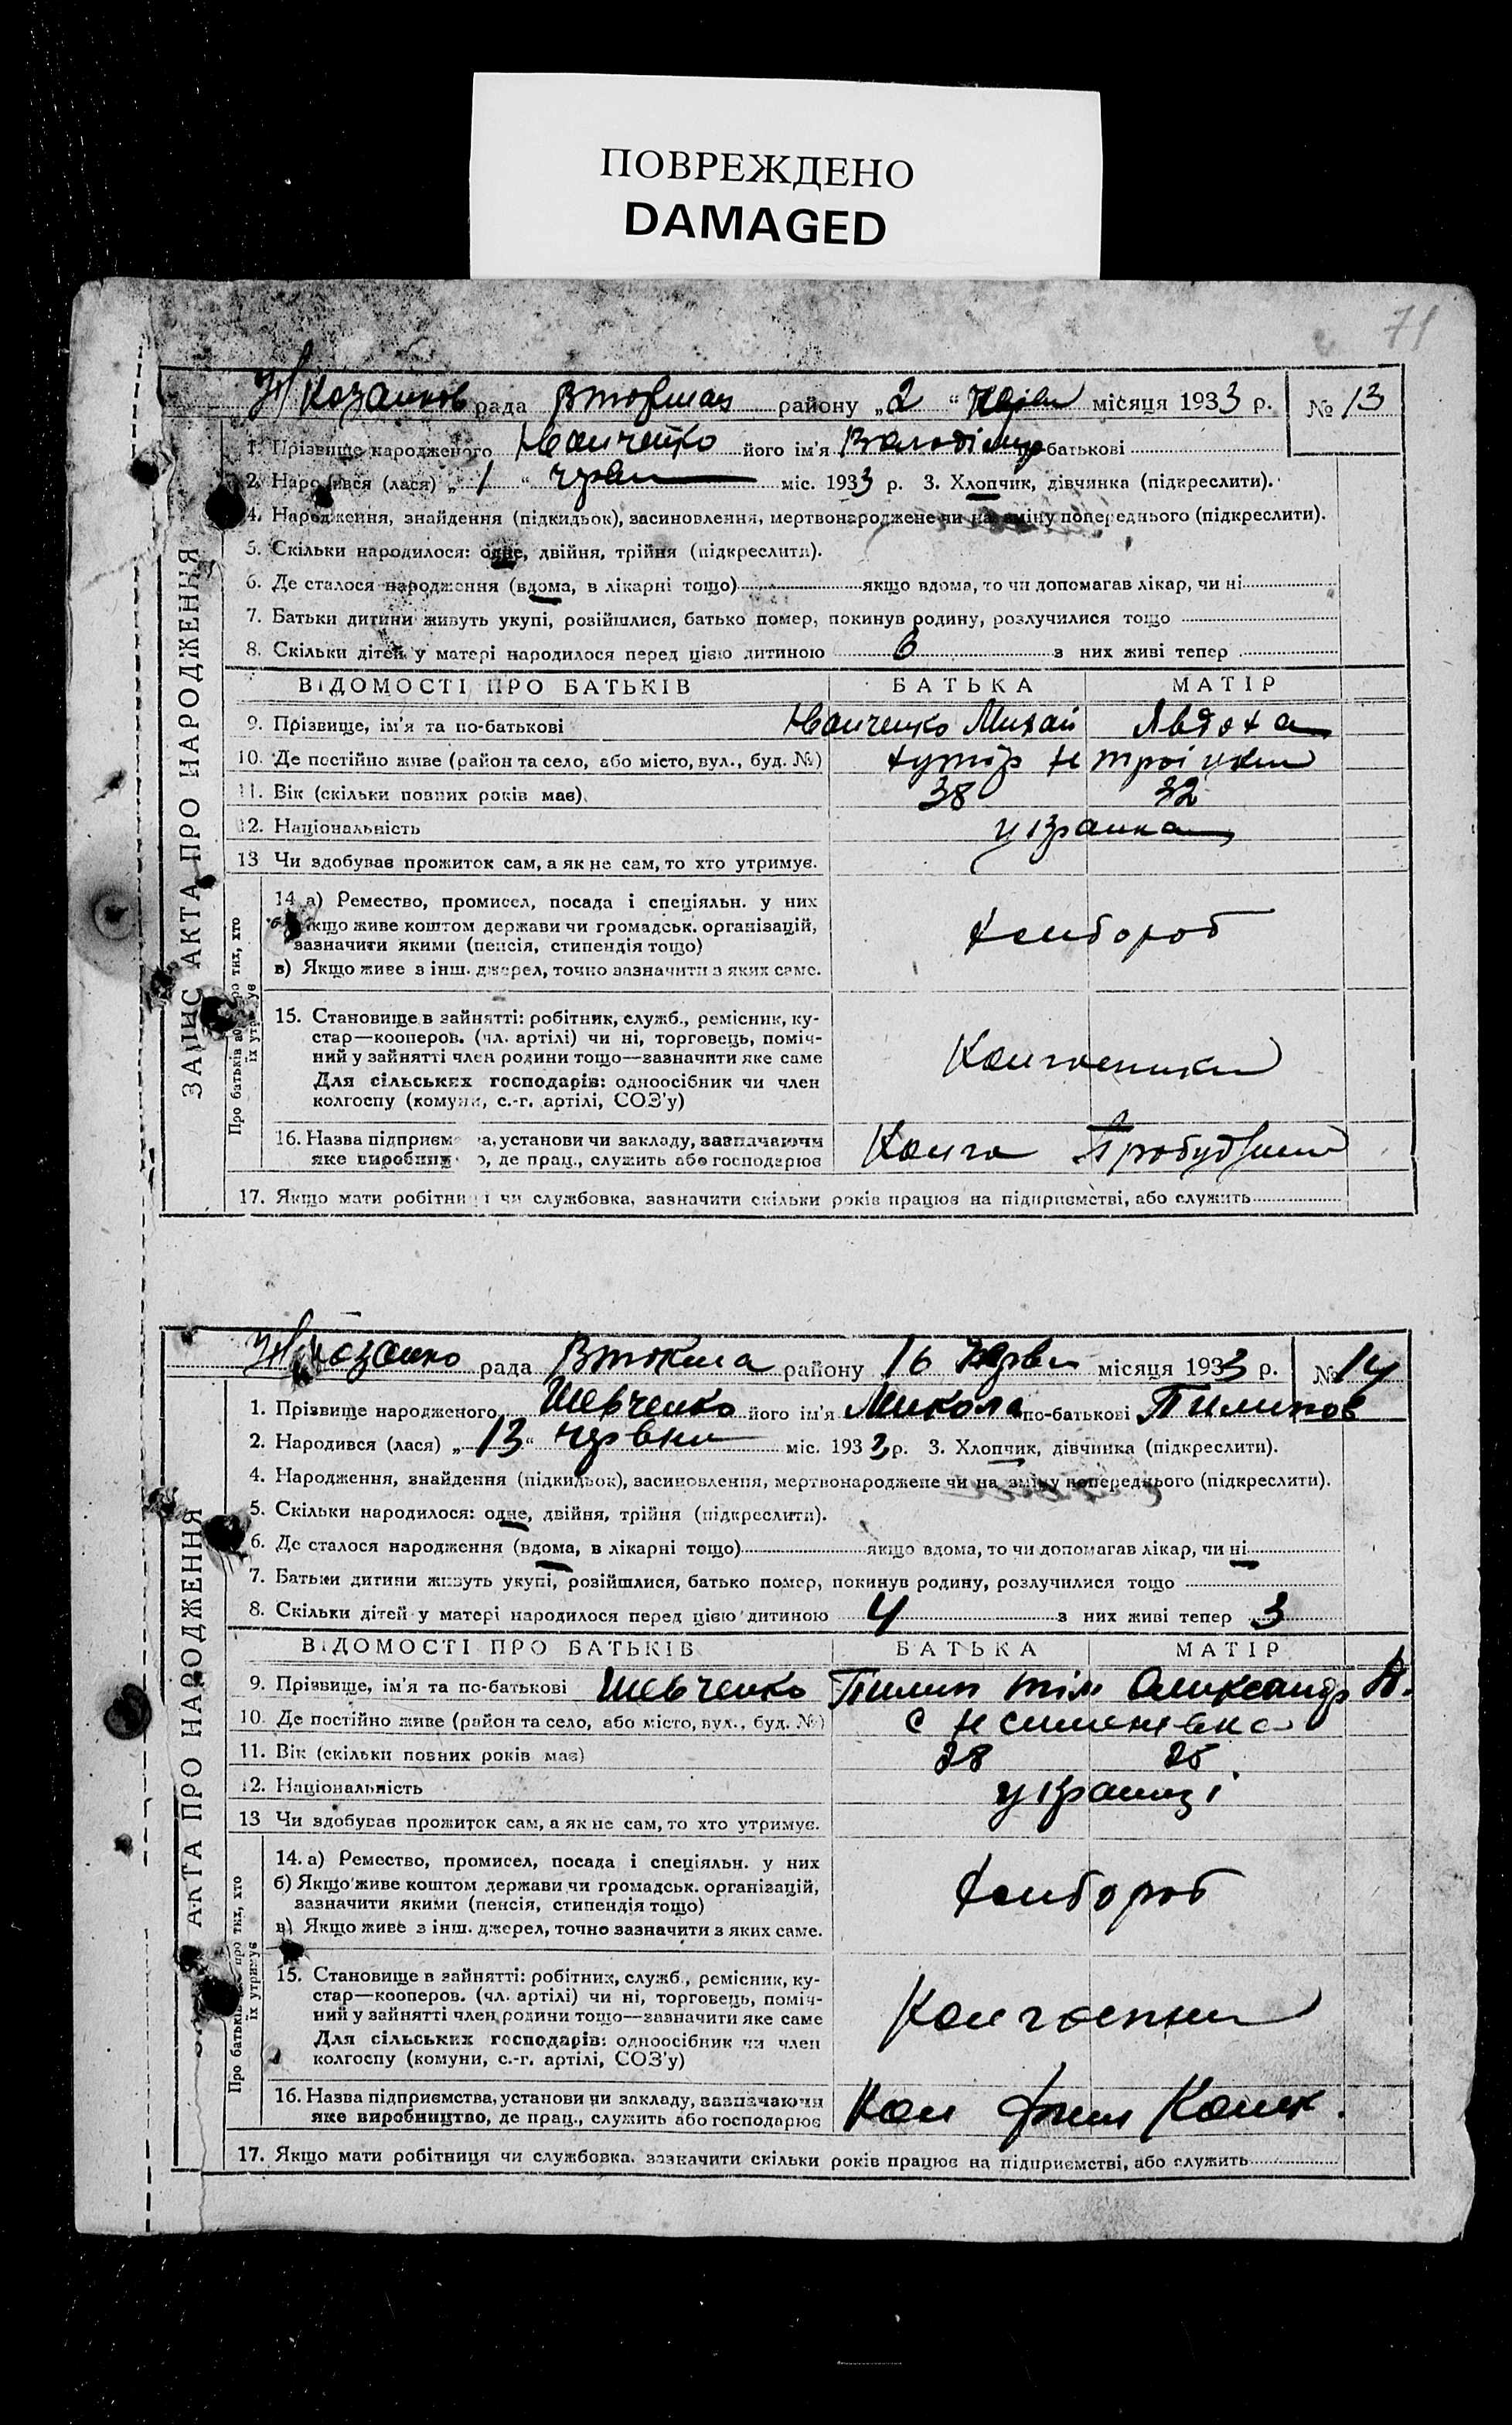 ПОВРЕЖДЕНО
DAMAGED
71
рада районy „2 “ місяця 1933 р. № 13
1. Прізвище народженого його ім'я Володімир по-батькові
2. Народився (лася) „ 1 “ міс. 1933 р. 3. Хлопчик, дівчинка (підкреслити).
4. Народження, знайдення (підкидьок), засиновлення, мертвонароджене чи на зміну попереднього (підкреслити).
5. Скільки народилося: одне, двійня, трійня (підкреслити).
6. Де сталося народження (вдома, в лікарні тощо) якщо вдома, то чи допомагав лікар, чи ні
7. Батьки дитини живуть укупі, розійшлися, батько помер, покинув родину, розлучилися тощо
8. Скільки дітей у матері народилося перед цією дитиною 6 з них живі тепер
ВІДОМОСТІ ПРО БАТЬКІВ БАТЬКА МАТІР
9. Прізвище, ім'я та по-батькові Михай Явдоха
10. Де постійно живе (район та село, або місто, вул., буд. №) хутір
11. Вік (скільки повних років має) 38 32
12. Національність
13 Чи здобував прожиток сам, а як не сам, то хто утримує.
ЗАПИС АКТА ПРО НАРОДЖЕННЯ
14 а) Ремество, промисел, посада і спеціяльн. у них
якщо живе коштом держави чи громадськ. організацій,
зазначити якими (пенсія, стипендія тощо)
в) Якщо живе з інш. джерел, точно зазначити з яких саме.
хлібороб
15. Становище в зайнятті: робітник, служб., ремісник, ку-
стар—кооперов. (чл. артілі) чи ні, торговець, поміч-
ний у зайнятті член родини тощо—зазначити яке саме
Для сільських господарів: одноосібник чи член
колгоспу (комуни, с.-г. артілі, СОЗ'у)
16. Назва підприєм а, установи чи закладу, зазначаючи
яке виробниц о, де прац., служить або господарює
17. Якщо мати робітниця чи службовка, зазначити скільки років працює на підприємстві, або служить
рада району 16 місяця 1933 р. № 14
1. Прізвище народженого Шевченко його ім'я Микола по-батькові Пилипов
2. Народився (лася) „ 13 “ червня міс. 1933 р. 3. Хлопчик, дівчинка (підкреслити).
4. Народження, знайдення (підкидьок), засиновлення, мертвонароджене чи на зміну попереднього (підкреслити).
5. Скільки народилося: одне, двійня, трійня (підкреслити).
6. Де сталося народження (вдома, в лікарні тощо) якщо вдома, то чи допомагав лікар, чи ні
7. Батьки дитини живуть укупі, розійшлися, батько помер, покинув родину, розлучилися тощо
8. Скільки дітей у матері народилося перед цією дитиною 4 з них живі тепер 3
ВІДОМОСТІ ПРО БАТЬКІВ БАТЬКА МАТІР
9. Прізвище, ім'я та по-батькові Шевченко Пилип Олександр
10. Де постійно живе (район та село, або місто, вул., буд. №) с
11. Вік (скільки повних років має) 28 25
12. Національність українці
13 Чи здобував прожиток сам, а як не сам, то хто утримує.
АКТА ПРО НАРОДЖЕННЯ
14. а) Ремество, промисел, посада і спеціяльн. у них
б) Якщо живе коштом держави чи громадськ. організацій,
зазначити якими (пенсія, стипендія тощо)
в) Якщо живе з інш. джерел, точно зазначити з яких саме.
хлібороб
15. Становище в зайнятті: робітник, служб., ремісник, ку-
стар—кооперов. (чл. артілі) чи ні, торговець, поміч-
ний у зайнятті член родини тощо—зазначити яке саме
Для сільських господарів: одноосібник чи член
колгоспу (комуни, с.-г. артілі, СОЗ'у)
16. Назва підприємства, установи чи закладу, зазначаючи
яке виробництво, де прац., служить або господарює
17. Якщо мати робітниця чи службовка, зазначити скільки років працює на підприємстві, або служить